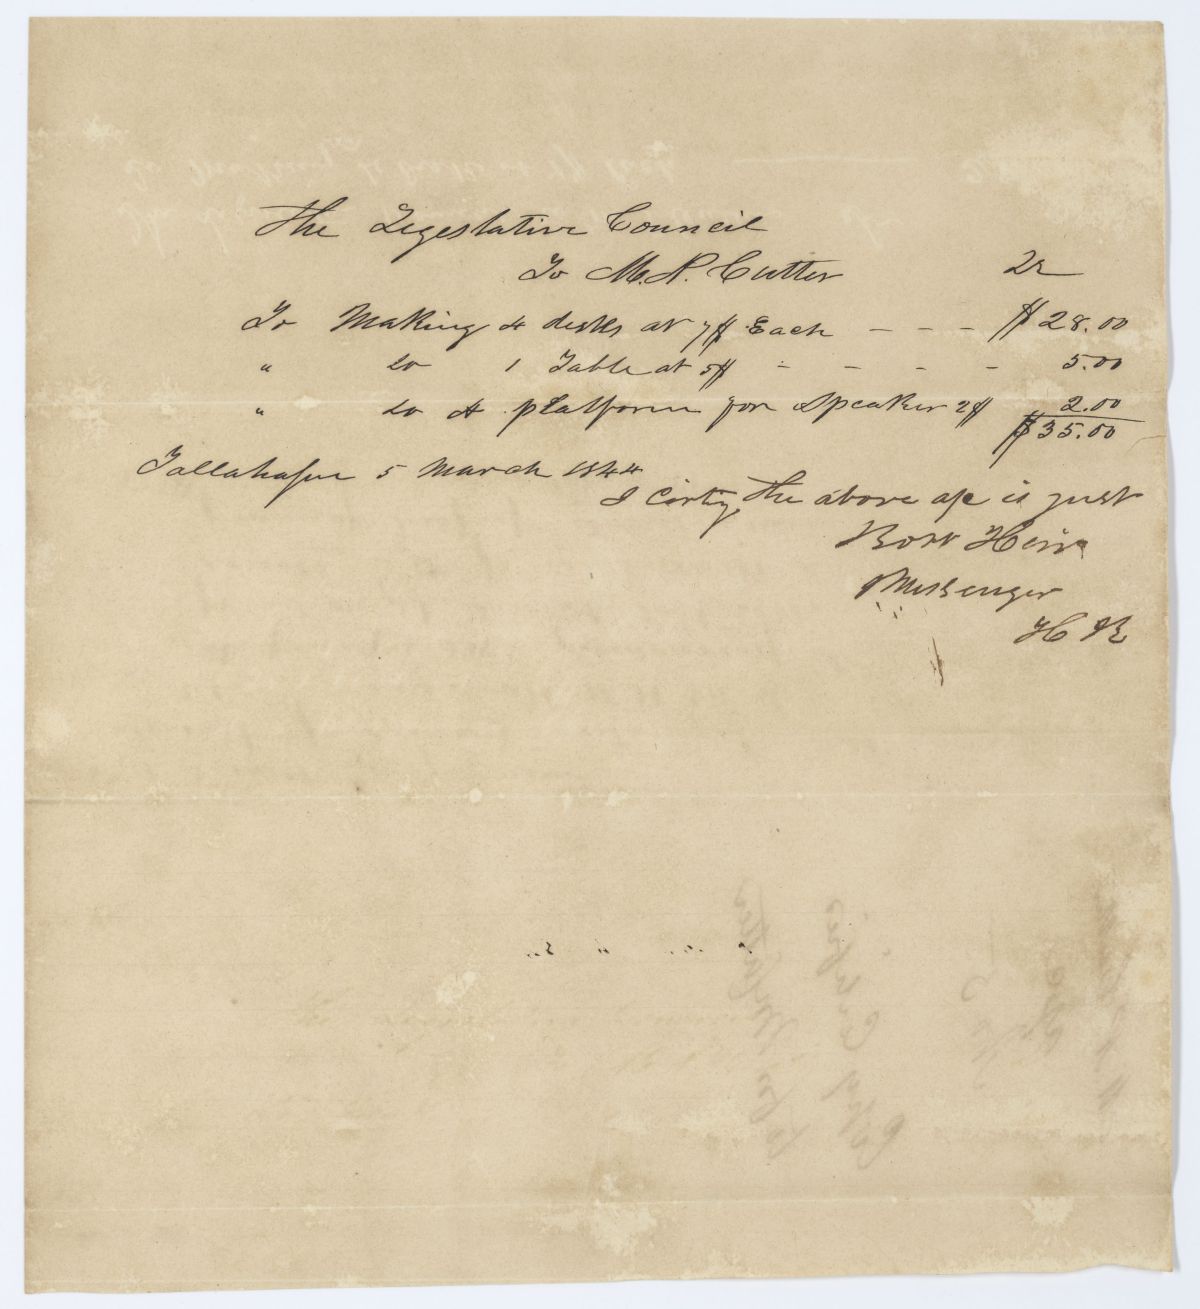 The Legeslative Council
To M. N. Cutter Dr
To Making 4 desks at 7$ Each - - - $28.00
" do 1 Table at 5$ - - - - 5.00
" do A platform for Speaker 2$ 2.00
$35.00
Tallahassee 5 March 1844
I Certify the above a/c is just
Messenger
H R